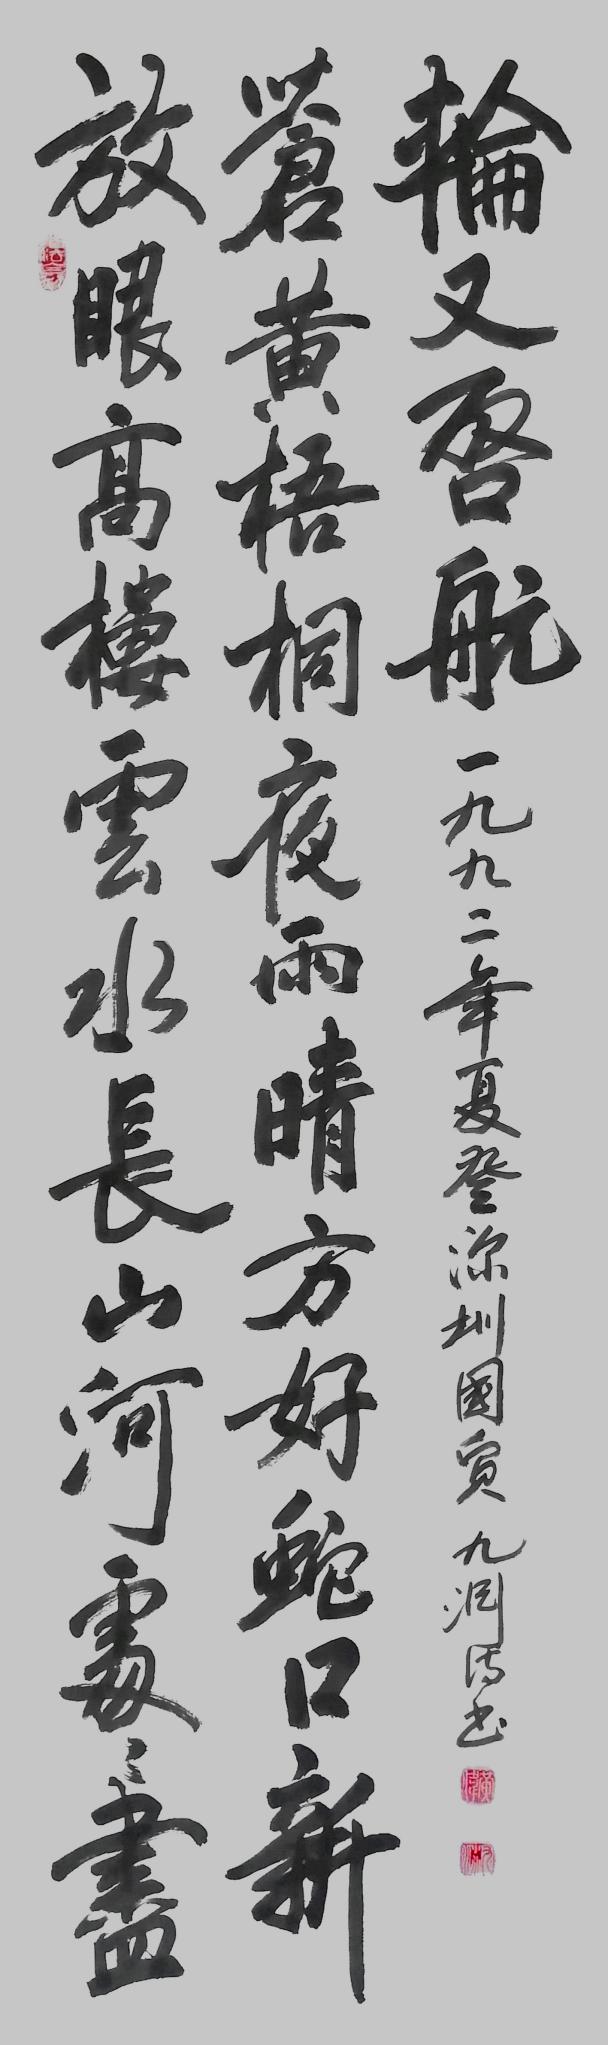 放眼高樓雲水長山河處々盡
蒼黃梧桐夜雨晴方好蛇口新
輪又啓航
一九九二年夏登深圳國貿 九澗詩書